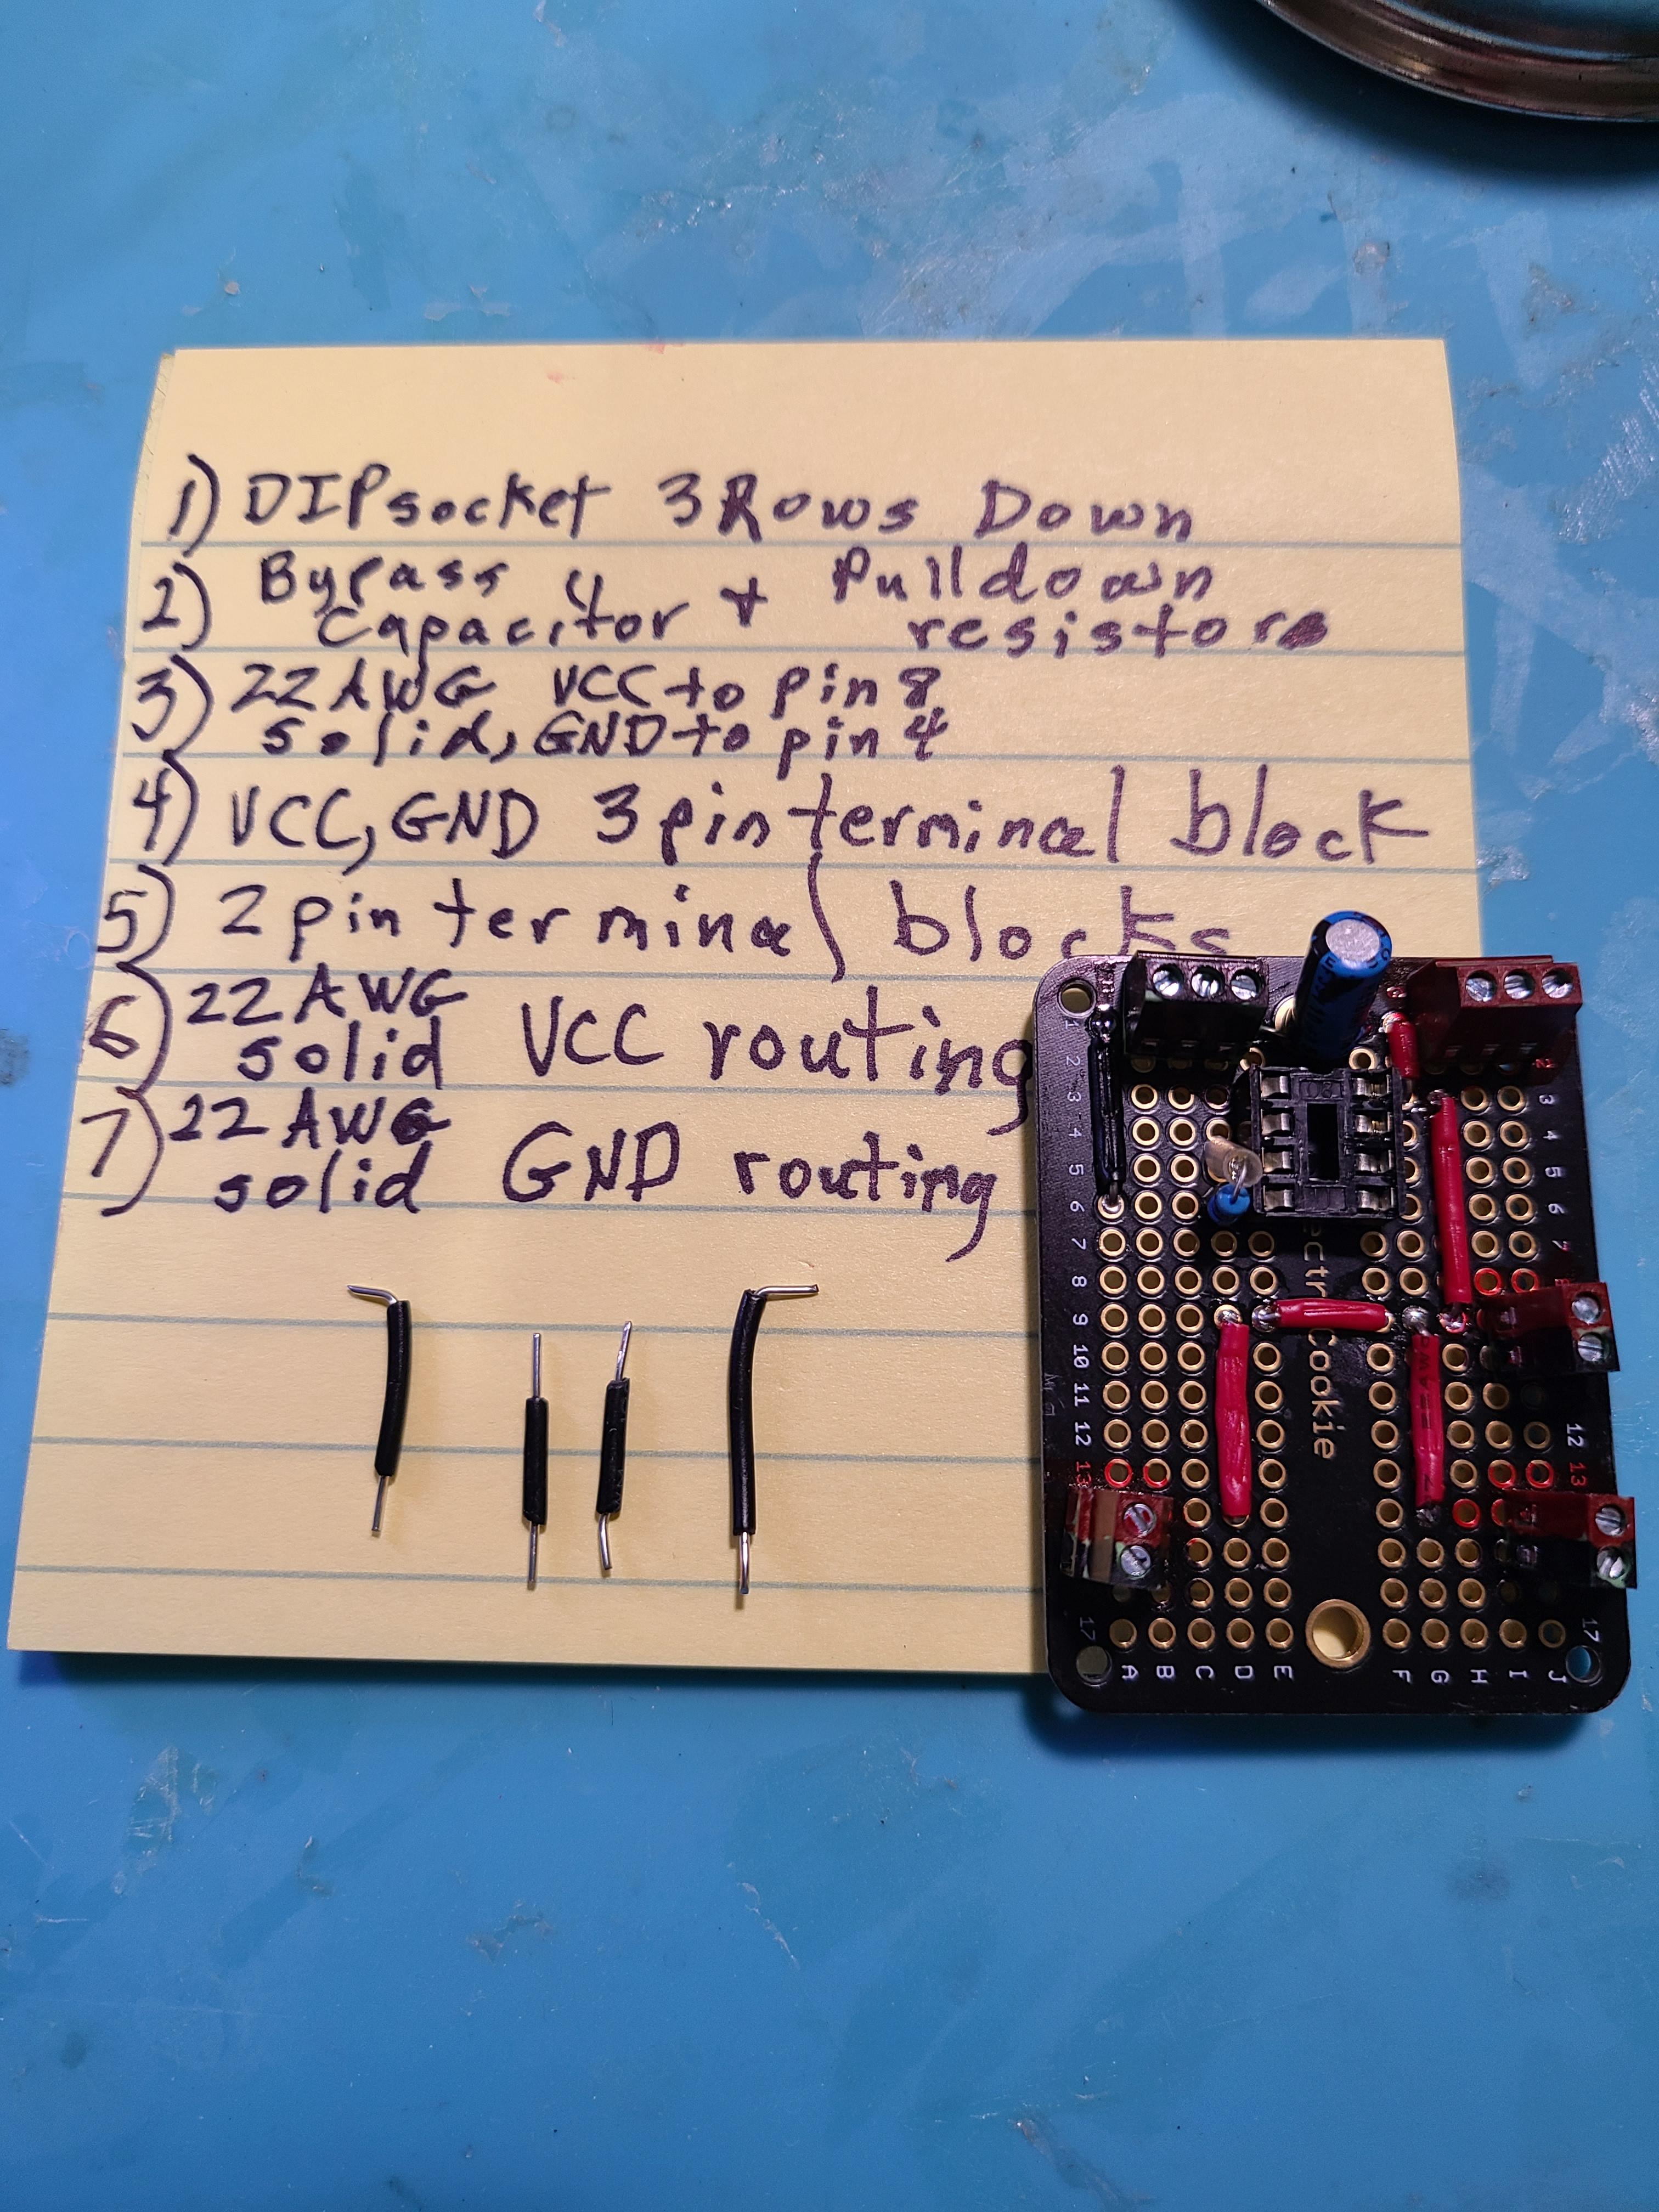 1) DIP socket 3 Rows Down
2) Bypass & Pulldown
Capacitor resistors
3) 22 AWG VCC to pin 8
solid, GND to pin 4
4) VCC, GND 3 pin terminal block
5) 2 pin terminal blocks
6) 22 AWG
solid VCC routing
7) 22 AWG
solid GND routing
1
2
3
4
5
6
7
8
9
10
11
12
13
17
3
4
5
6
7
12
13
17
Cookie
A B C D E F G H I J